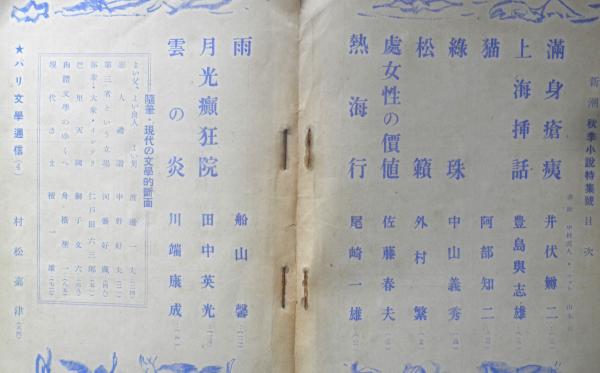 新潮 秋季小說特集號 目次
滿身瘡痍 井伏鱒二
上海揷話 豊島與志雄
猫 阿部知二
綠珠 中山義秀
松籟 外村繁
處女性の價値 佐藤春夫
熱海行 尾崎一雄
雨 船山馨
月光癲狂院 田中英光
雲の炎 川端康成
隨筆・現代の文學的斷面
よい父、よい良人、よい男 渡邊一夫
第三者という立場 河盛好藏
巴里天國 獅子文六
肉體文學のゆくへ 舟橋聖一
現代さま 檀一雄
★パリ文學通信 村松嘉津